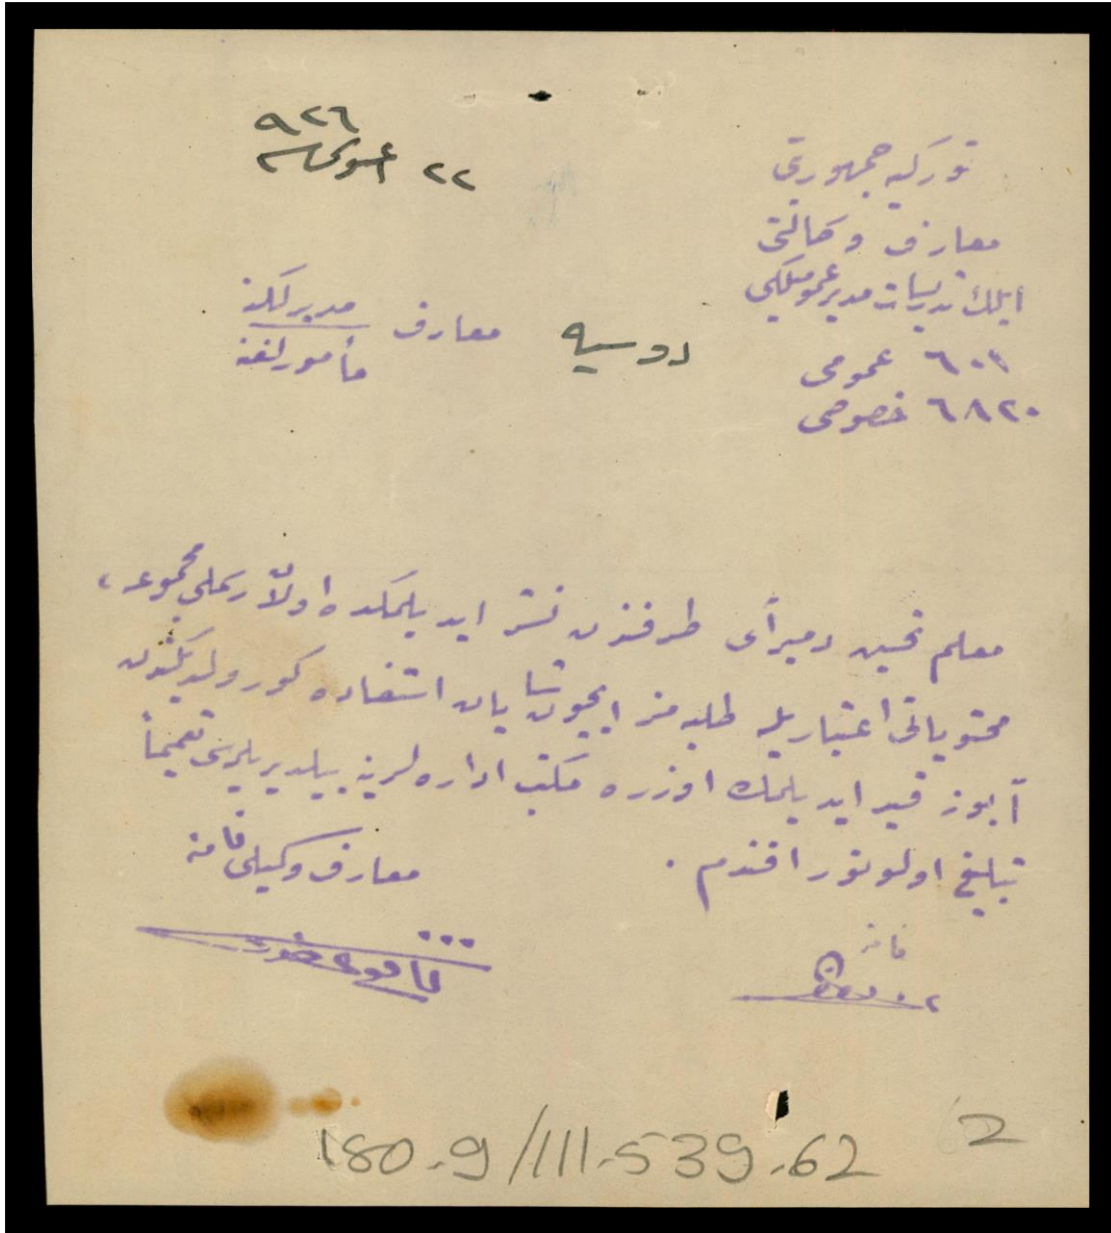 ٩٢٦
٢٢ اغستوس
توركيه جمهوريتى
معارف وكالتى
ايلك تدريسات مدير عموميلكى
٦٠١ عمومى
٦٨٢٠ خصوصى
دوسيه
معارف مديرلكنه
مأمورلغنه
معلم تحسين دميرآى طرفندن نشر ايديلمكده اولان رسملى مجموعه،
محتوياتى اعتباريله طلبه مز ايچون شايان استفاده كورولديكندن
آبونه قيد ايديلمك اوزره مكتب اداره لرينه بيلديريلمسى تعميماً
تبليغ اولونور افندم.
معارف وكيلى نامنه
180.9/111.539.62
2